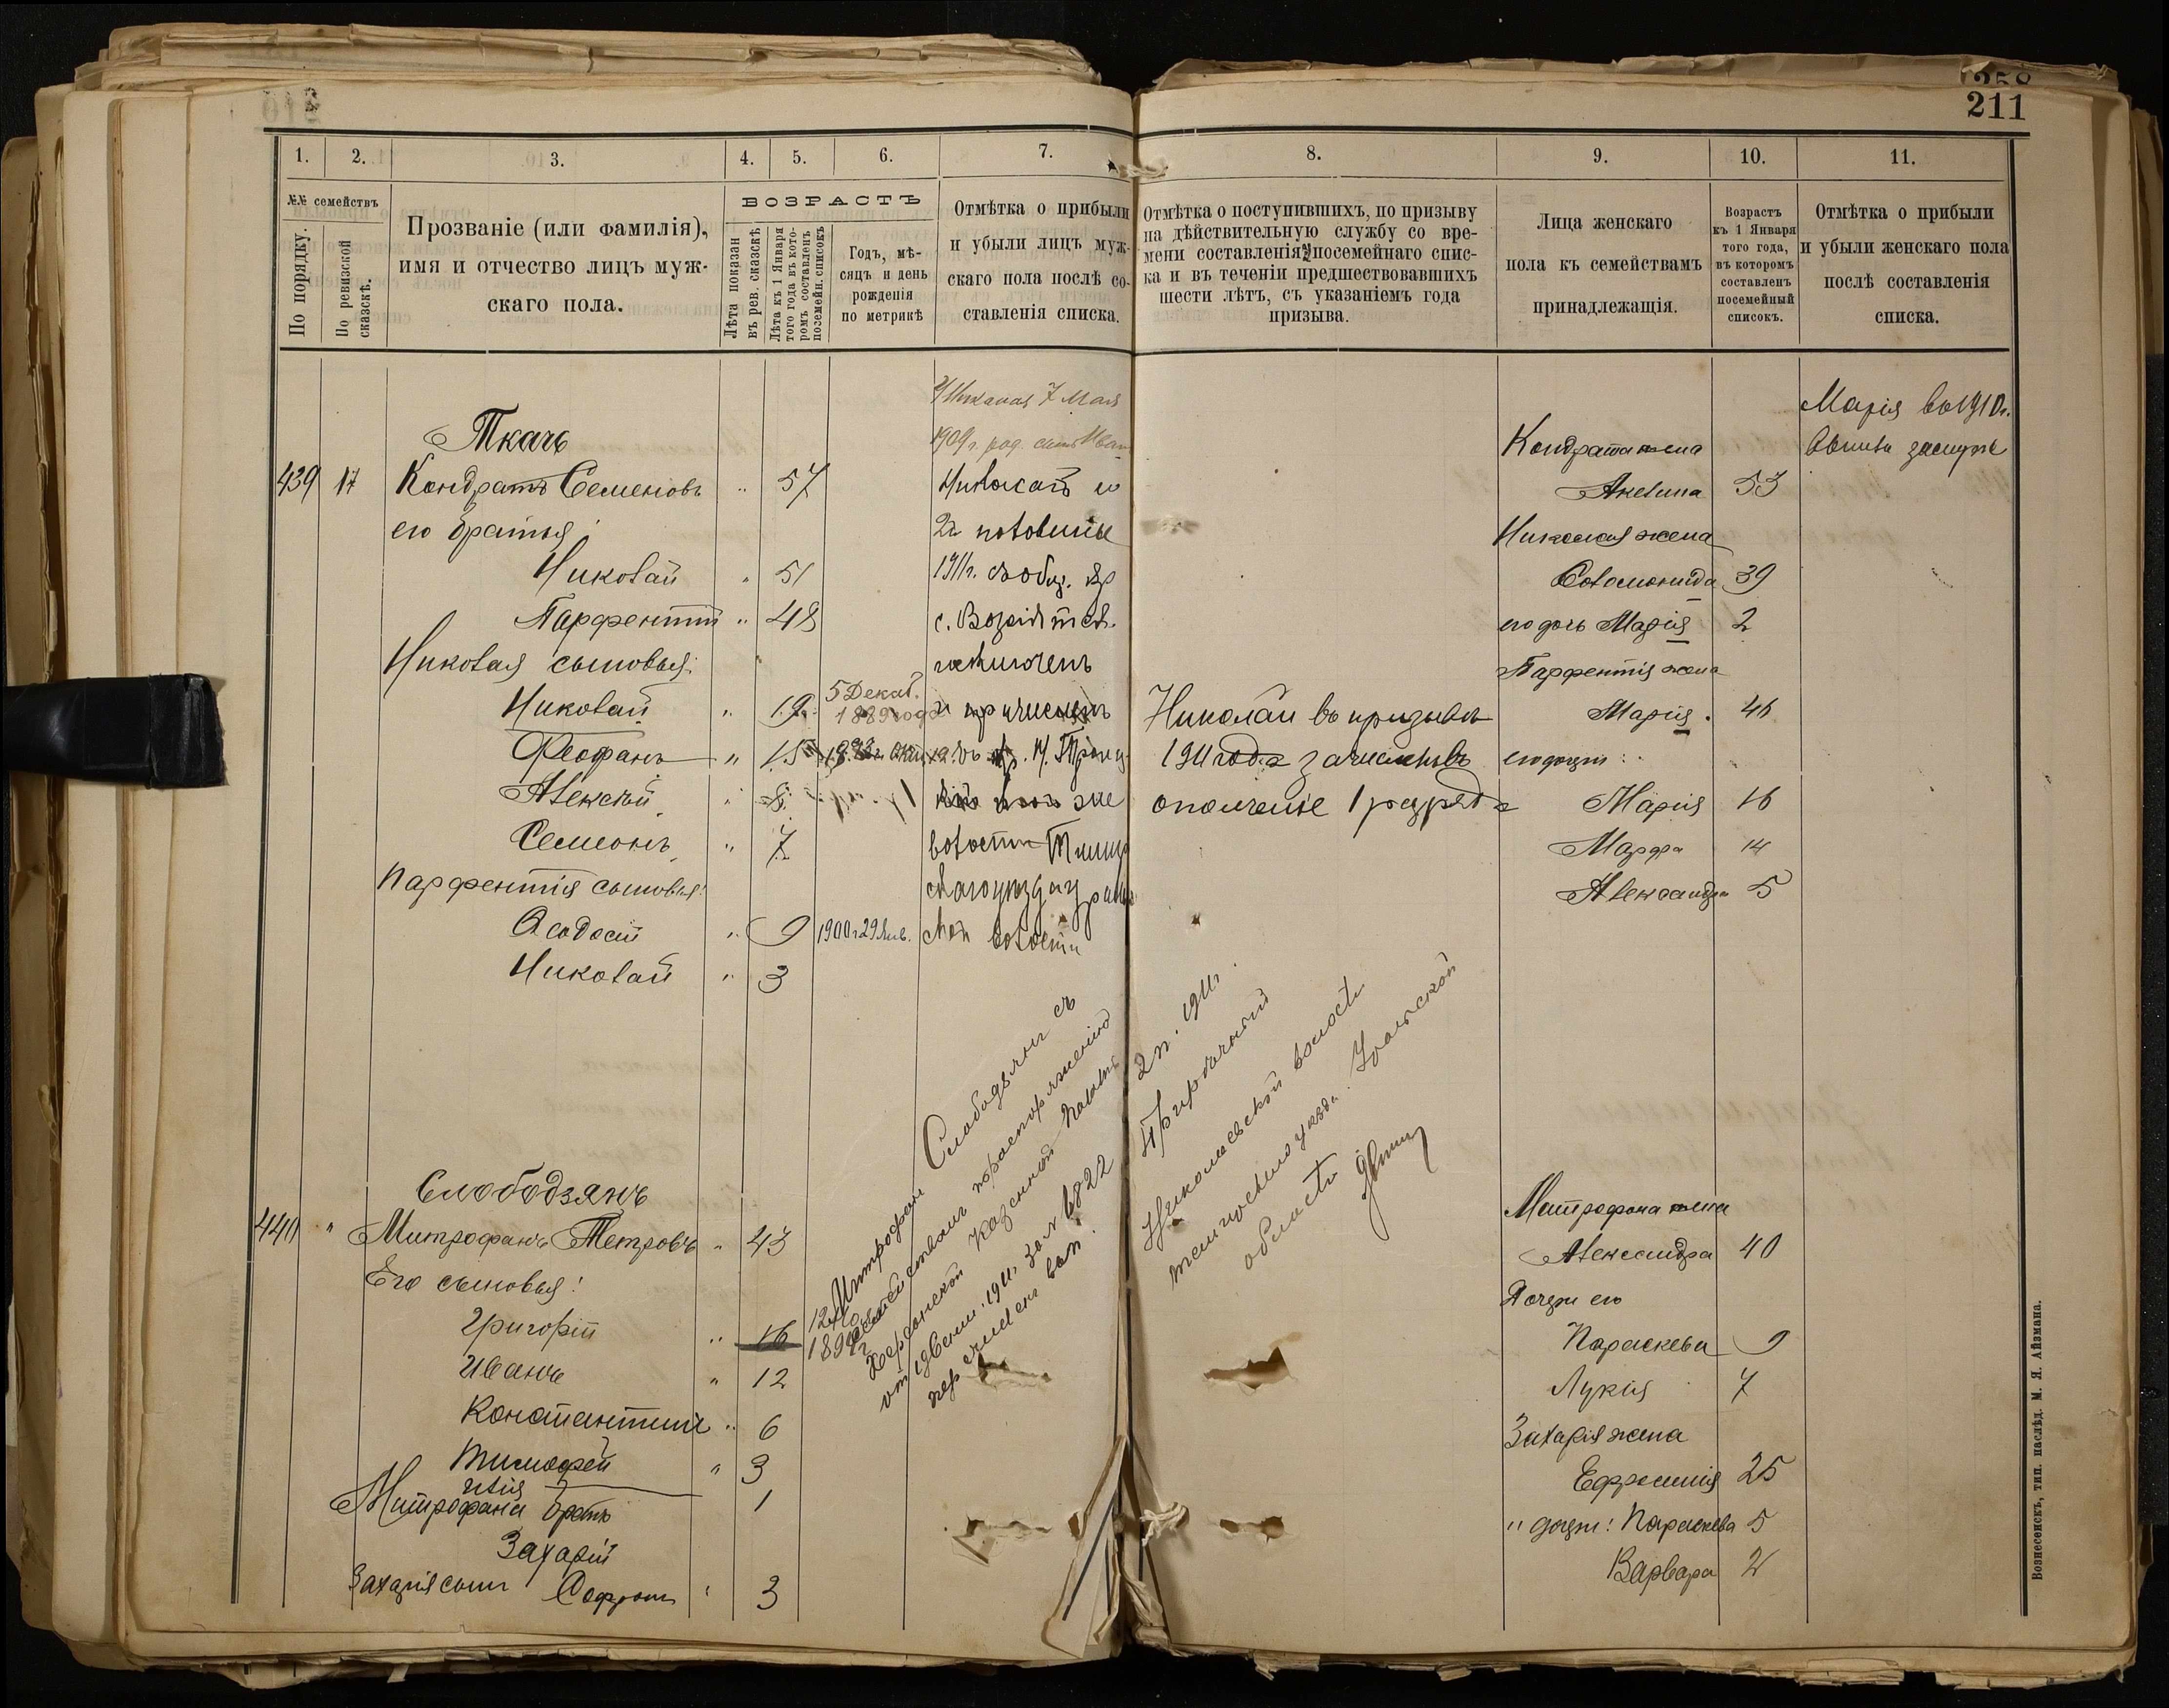 258
211
1. 2. 3. 4. 5. 6. 7. 8. 9. 10. 11.
№№ семействъ
По порядку.
По ревизской сказскѣ.
Прозваніе (или фамилія),
имя и отчество лицъ муж-
скаго пола.
ВОЗРАСТЪ
Лѣта показан
въ рев. сказскѣ
Лѣта къ 1 Января
того года въ кото-
ромъ составленъ
посемейн. списокъ
Годъ, мѣ-
сяцъ и день
рожденія
по метрикѣ
Отмѣтка о прибыли
и убыли лицъ муж-
скаго пола послѣ со-
ставленія списка.
Отмѣтка о поступившихъ, по призыву
на дѣйствительную службу со вре-
мени составленія посемейнаго спис-
ка и въ теченіи предшествовавшихъ
шести лѣтъ, съ указаніемъ года
призыва.
Лица женскаго
пола къ семействамъ
принадлежащія.
Возрастъ
къ 1 Января
того года,
въ которомъ
составленъ
посемейный
списокъ.
Отмѣтка о прибыли
и убыли женскаго пола
послѣ составленія
списка.
Ткачъ
439 17 Кондратъ Семеновъ " 57
его братья:
Николай " 51
Парфентій " 48
Николая сыновья:
Николай " 19 5 Декаб. 1889 года
Феофанъ " 15
Алексѣй " 8
Семіонъ " 7
Парфентія сыновья:
Феодосій " 9 1900 г 29 Янв.
Николай " 3
Николая 7 Мая
1909 г. род. сынъ Иван
Николай со
2й половины
1911 г. съ общ.
исключенъ
и причисленъ
волости
волости
Николай въ призывъ
1911 года зачисленъ въ
ополченіе 1 разряда
Кондрата жена
Акелина 53
Николая жена
Соломонида 39
его дочь Марія 2
Парфентія жена
Марія 46
его дочери:
Марія 16
Марфа 14
Александра 5
Марія въ 1910 г.
вышла замужъ
Слободзянъ
440 " Митрофанъ Петровъ " 43
Его сыновья:
Григорій " 16
Иванъ " 12
Константинъ " 6
Тимофей " 3
Илія 1
Митрофана братъ
Захарій
Захарія сынъ Софронъ " 3
Митрофанъ Слободянъ съ
семействомъ по распоряженію
Херсонской Казенной Палаты
от 1911 за № 6822
перечисленъ
2 п. 1911 г.
Николаевской волости
уѣзда
области
Митрофана жена
Александра 40
Дочери его
Параскева 9
Лукія 7
Захарія жена
Ефросинія 25
" дочери: Параскева 5
Варвара 2
Вознесенскъ, тип. наслѣд. М. Я. Айзмана.